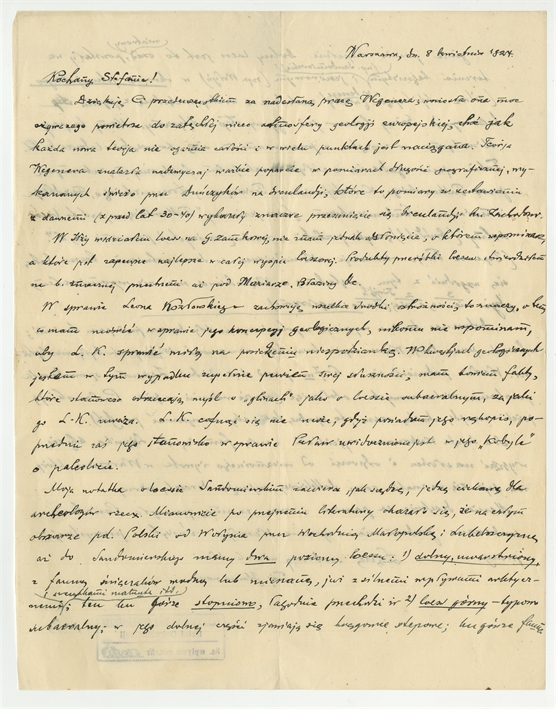 Warszawa, dn. 8 kwietnia 1924.
Kochany Stefanie!
Dziękuję Ci przedewszystkiem za nadesłaną pracę Wegenera; wniosła ona moc
ożywczego powietrza do zatęchłej nieco atmosfery geologji europejskiej, choć jak
każda nowa teorja nie ogarnia całości i w wielu punktach jest naciągana. Teorja
Wegenera znalazła nadzwyczaj poparcie w pomiarach długości geograficznej, wy-
konanych świeżo przez Duńczyków na Grenlandji, które to pomiary w zestawieniu
z dawnemi (z przed lat 30-40) wykazały znaczne przesunięcie się Grenlandji ku Zachodowi.
W Iłży widziałem loess na G. Zamkowej, nie znam jednak odsłonięcia, o którem wspominasz,
a które jest zapewne najlepsze w całej wyspie loessowej. Produkty przeróbki loessu
na b. znacznej przestrzeni aż pod Mariarze, Błaziny &c.
W sprawie Leona Kozłowskiego zachowuję wszelką ostrożność, to znaczy, o tem
co mam mówić w sprawie jego koncepcji geologicznych, nikomu nie wspominam,
aby L. K. sprawić miłą na posiedzeniu niespodziankę. W kwestjach geologicznych
jestem w tym wypadku zupełnie pewien swej słuszności, mam bowiem fakty,
które stanowczo odrzucają myśl o "glinach" jako o loessie subaeralnym, za jaki
go L. K. uważa. L. K. cofnąć się nie może, gdyż posiadam jego rękopis, po-
przednio zaś jego stanowisko w sprawie uwidocznione jest w jego
o paleolicie.
Moja notatka o loessie Sandomierskim zawiera, jak sądzę, jedną ciekawą dla
archeologów rzecz. Mianowicie po przejrzeniu literatury okazało się, że na całym
obszarze pd. Polski od Wołynia przez Wschodnią Małopolskę i Lubelszczyznę
aż do Sandomierskiego mamy dwa poziomy loessu: 1) dolny, uwarstwiony,
z fauną ślimaków wodną lub mieszaną, już z silnemi wpływami arktycz-
i szczątkami mamuta itd.
nemi; ten ku górze stopniowo, łagodnie przechodzi w 2) loess górny - typowo
subaeralny; w jego dolnej części zjawiają się kręgowce stepowe; ku górze fauna